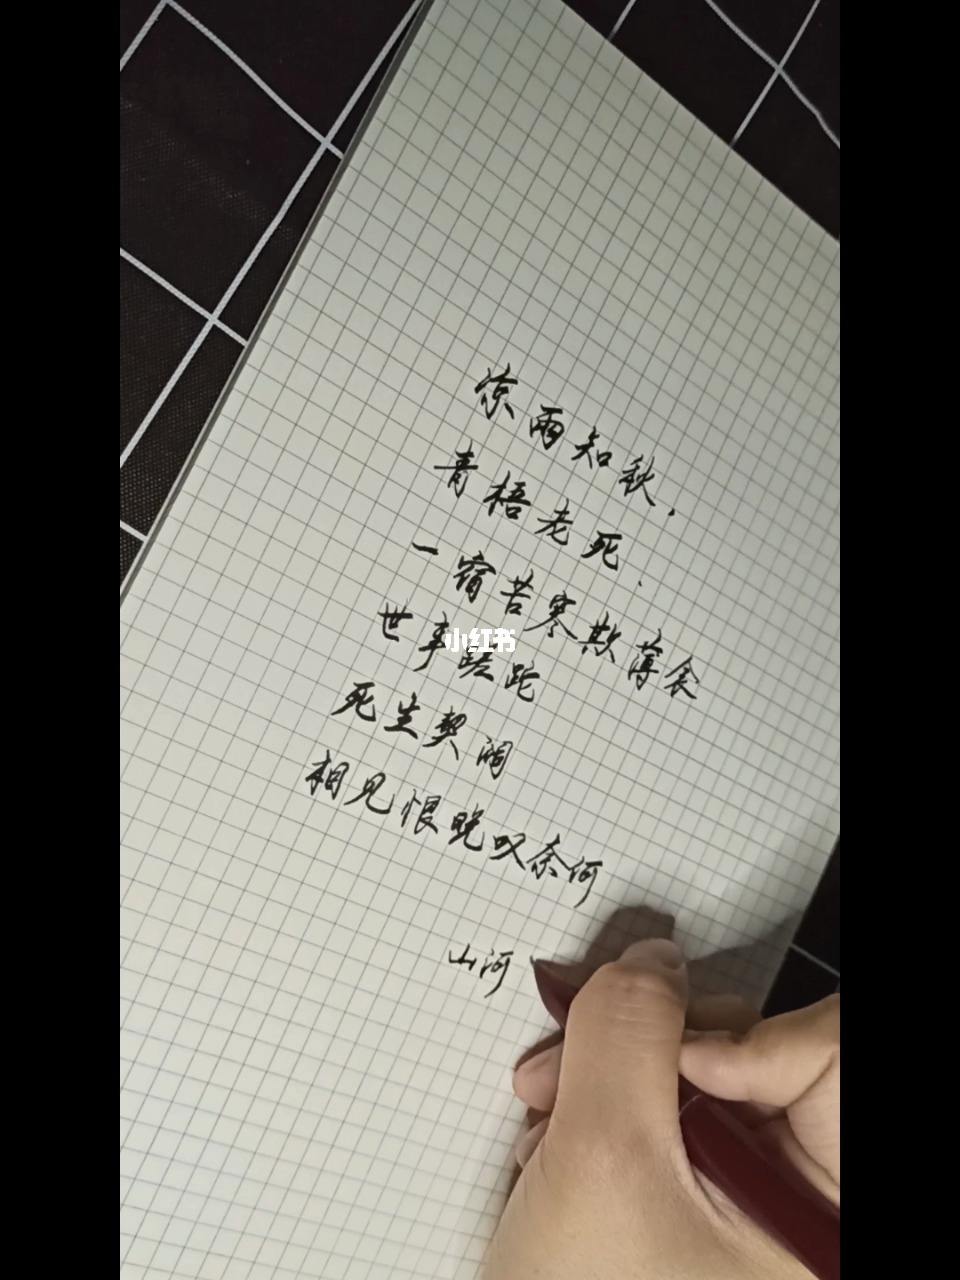 凉雨知秋，
青梧老死，
一宿苦寒欺薄衾
世事蹉跎
死生契阔
相见恨晚叹奈何
山河
小红书